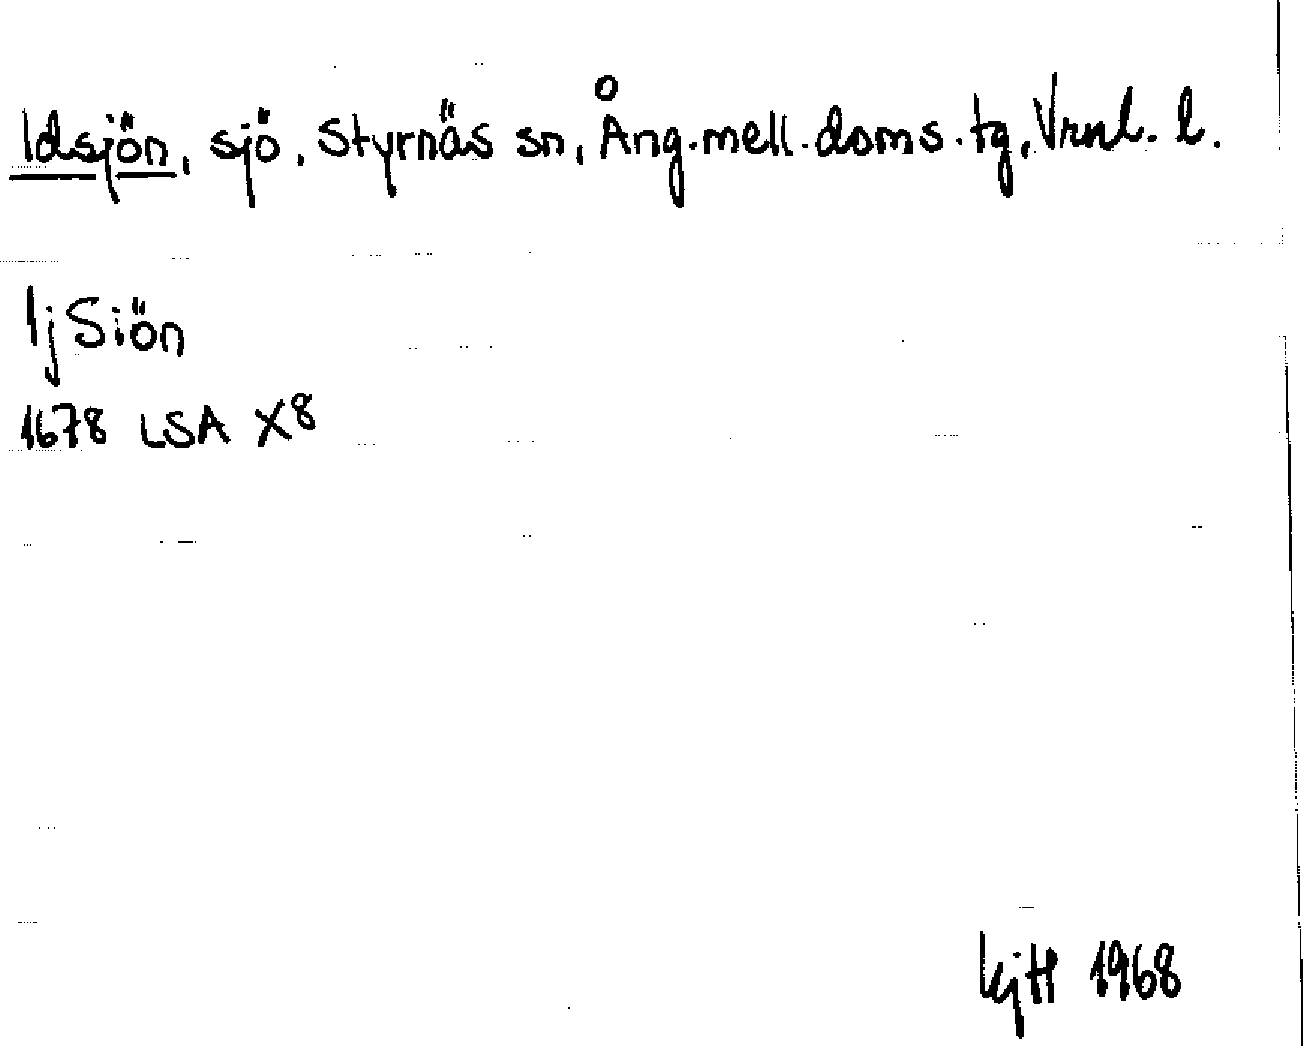 Idsjön, sjö, Styrnäs sn, Ång. mell. doms. tg, Vrnl. l.
Ij Siön
1678 LSA X8
KjH 1968